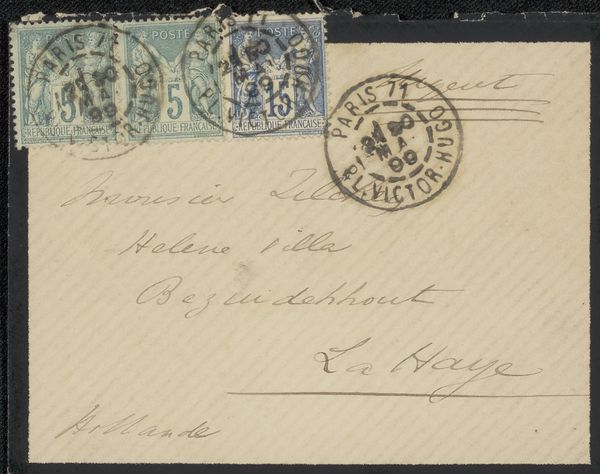 POSTES
5
REPUBLIQUE FRANÇAISE
5
REPUBLIQUE FRANÇAISE
POSTE
15
REPUBLIQUE FRANÇAISE
PARIS 71
99
PARIS 71
99
Urgent
PARIS 71
MA
99
PL. VICTOR-HUGO
Monsieur Zilcken
Helene Villa
Bezuidenhout
La Haye
Hollande